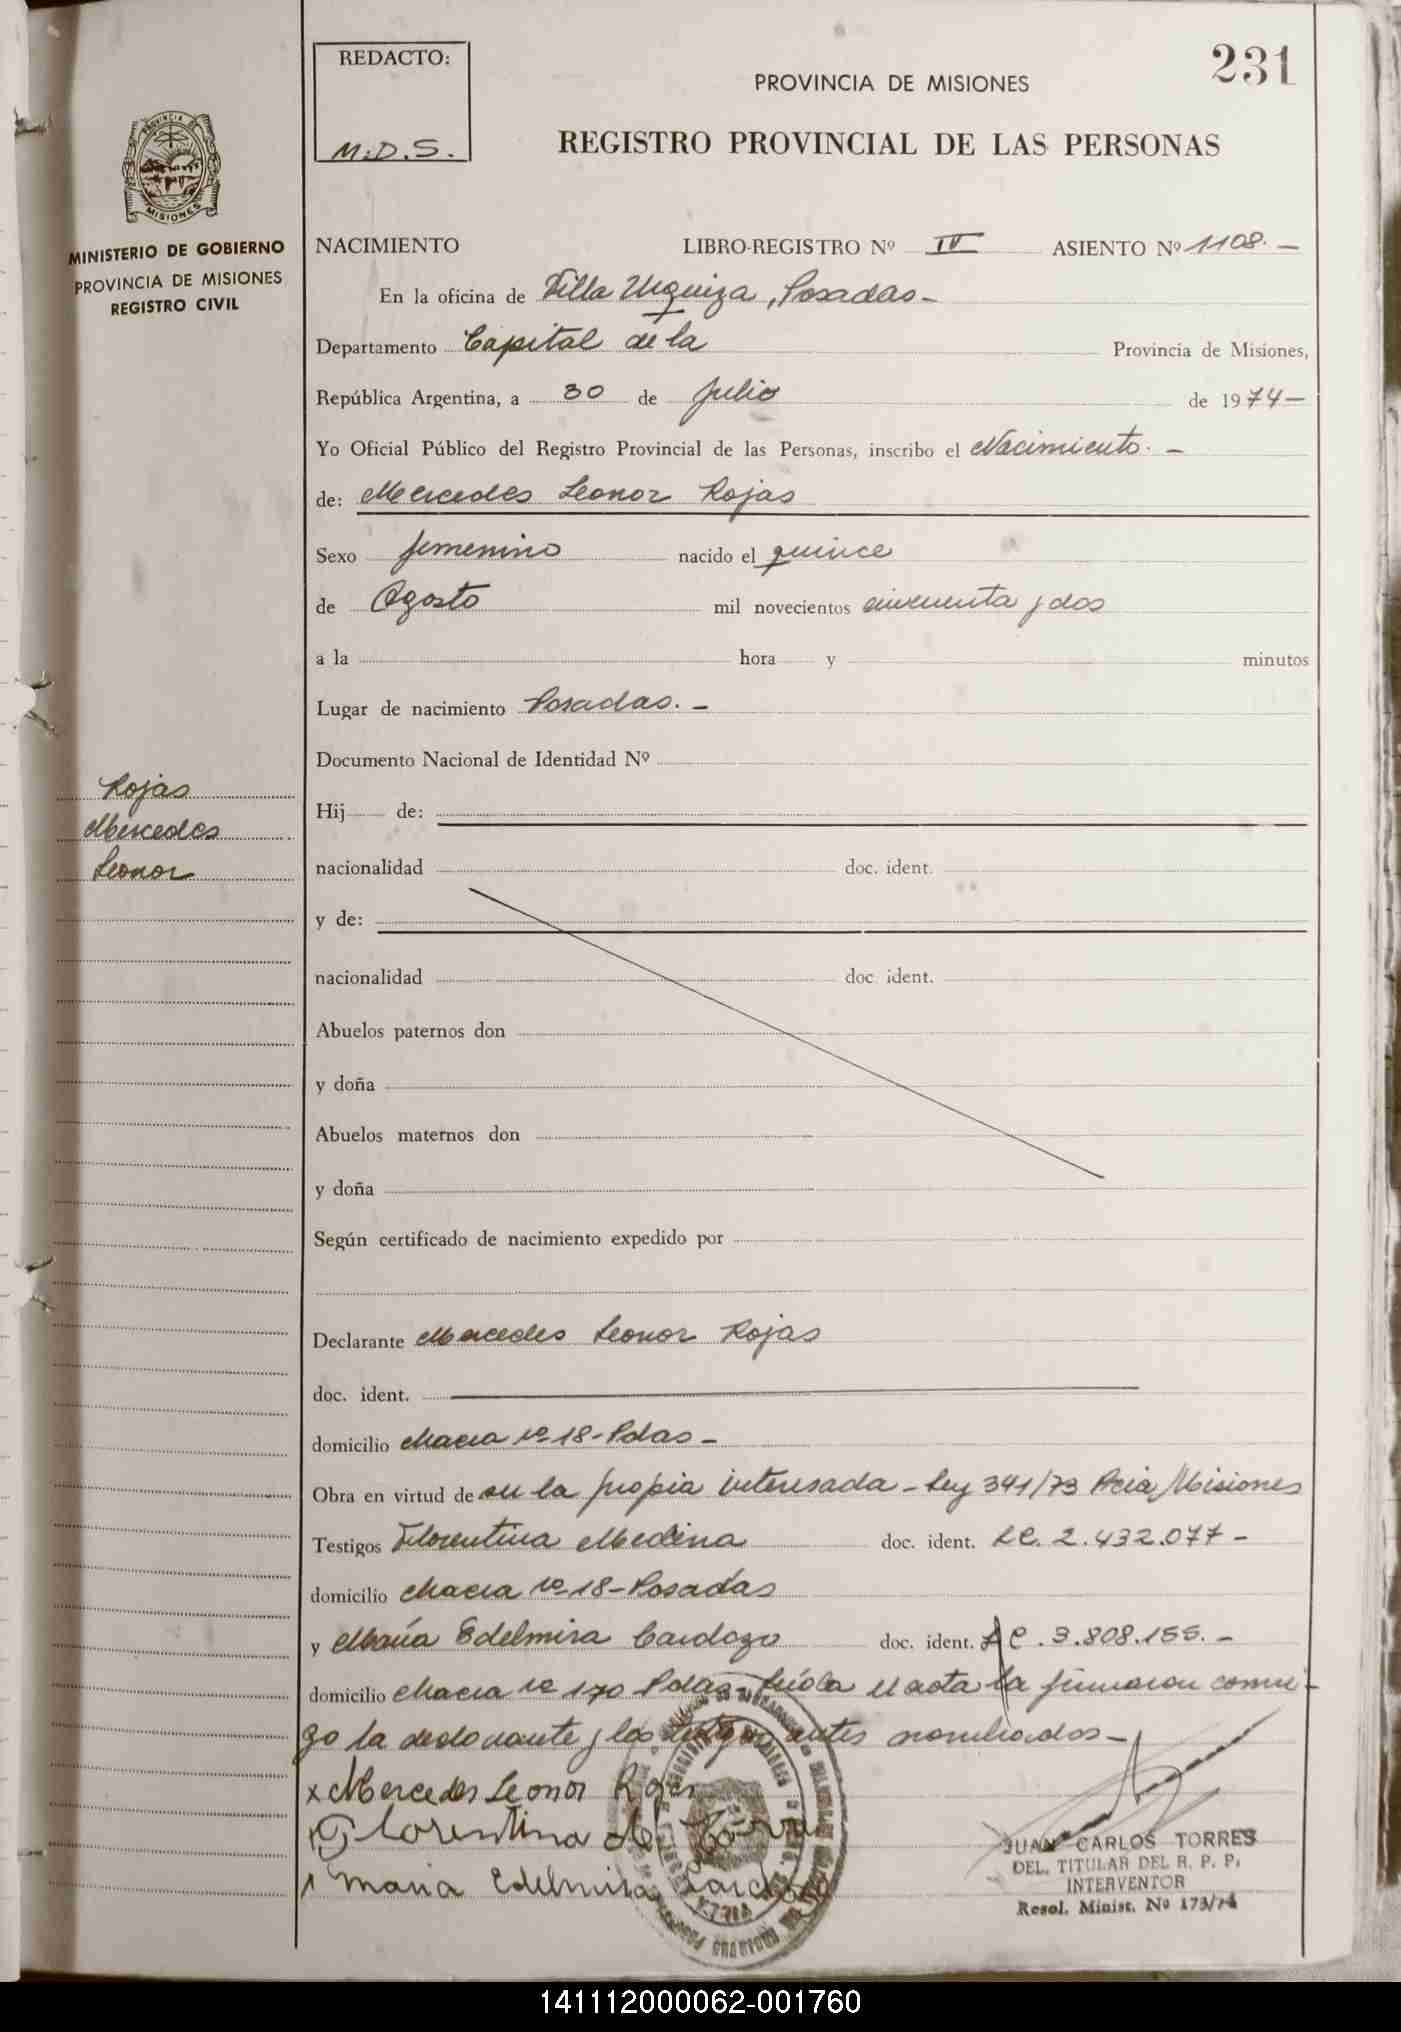 REDACTO:
M.D.S.
231
PROVINCIA DE MISIONES
REGISTRO PROVINCIAL DE LAS PERSONAS
PROVINCIA DE
MISIONES
MINISTERIO DE GOBIERNO
PROVINCIA DE MISIONES
REGISTRO CIVIL
NACIMIENTO LIBRO-REGISTRO Nº IV ASIENTO Nº 1108.-
En la oficina de Villa Urquiza, Posadas-
Departamento Capital de la Provincia de Misiones,
República Argentina, a 30 de Julio de 1974-
Yo Oficial Público del Registro Provincial de las Personas, inscribo el Nacimiento.-
de: Mercedes Leonor Rojas
Sexo femenino nacido el quince
de Agosto mil novecientos cincuenta y dos
a la hora y minutos
Lugar de nacimiento Posadas.-
Documento Nacional de Identidad Nº
Rojas
Mercedes
Leonor
Hij de:
nacionalidad doc. ident.
y de:
nacionalidad doc. ident.
Abuelos paternos don
y doña
Abuelos maternos don
y doña
Según certificado de nacimiento expedido por
Declarante Mercedes Leonor Rojas
doc. ident.
domicilio Chacra Nº 18-Pdas-
Obra en virtud de ser la propia interesada-Ley 341/73 Pcia Misiones
Testigos Florentina Medina doc. ident. LC. 2.432.077-
domicilio Chacra Nº 18-Posadas
y María Edelmira Cardozo doc. ident. LC. 3.808.155.-
domicilio Chacra Nº 170 Pdas- Leída el acta la firmaron conmi-
go la declarante y los testigos antes nombrados-
x Mercedes Leonor Rojas
Florentina M
Maria Edelmira Cardozo
JUAN CARLOS TORRES
DEL. TITULAR DEL R. P. P.
INTERVENTOR
Resol. Minist. Nº 173/74
141112000062-001760